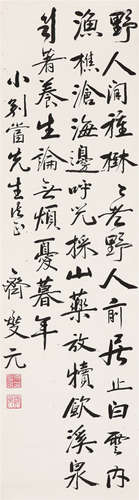 野人閒種樹々老野人前居止白雲内
漁樵滄海邊呼兒採山藥放犢飲溪泉
自著養生論無煩憂暮年
小 當先生法正
齊燮元